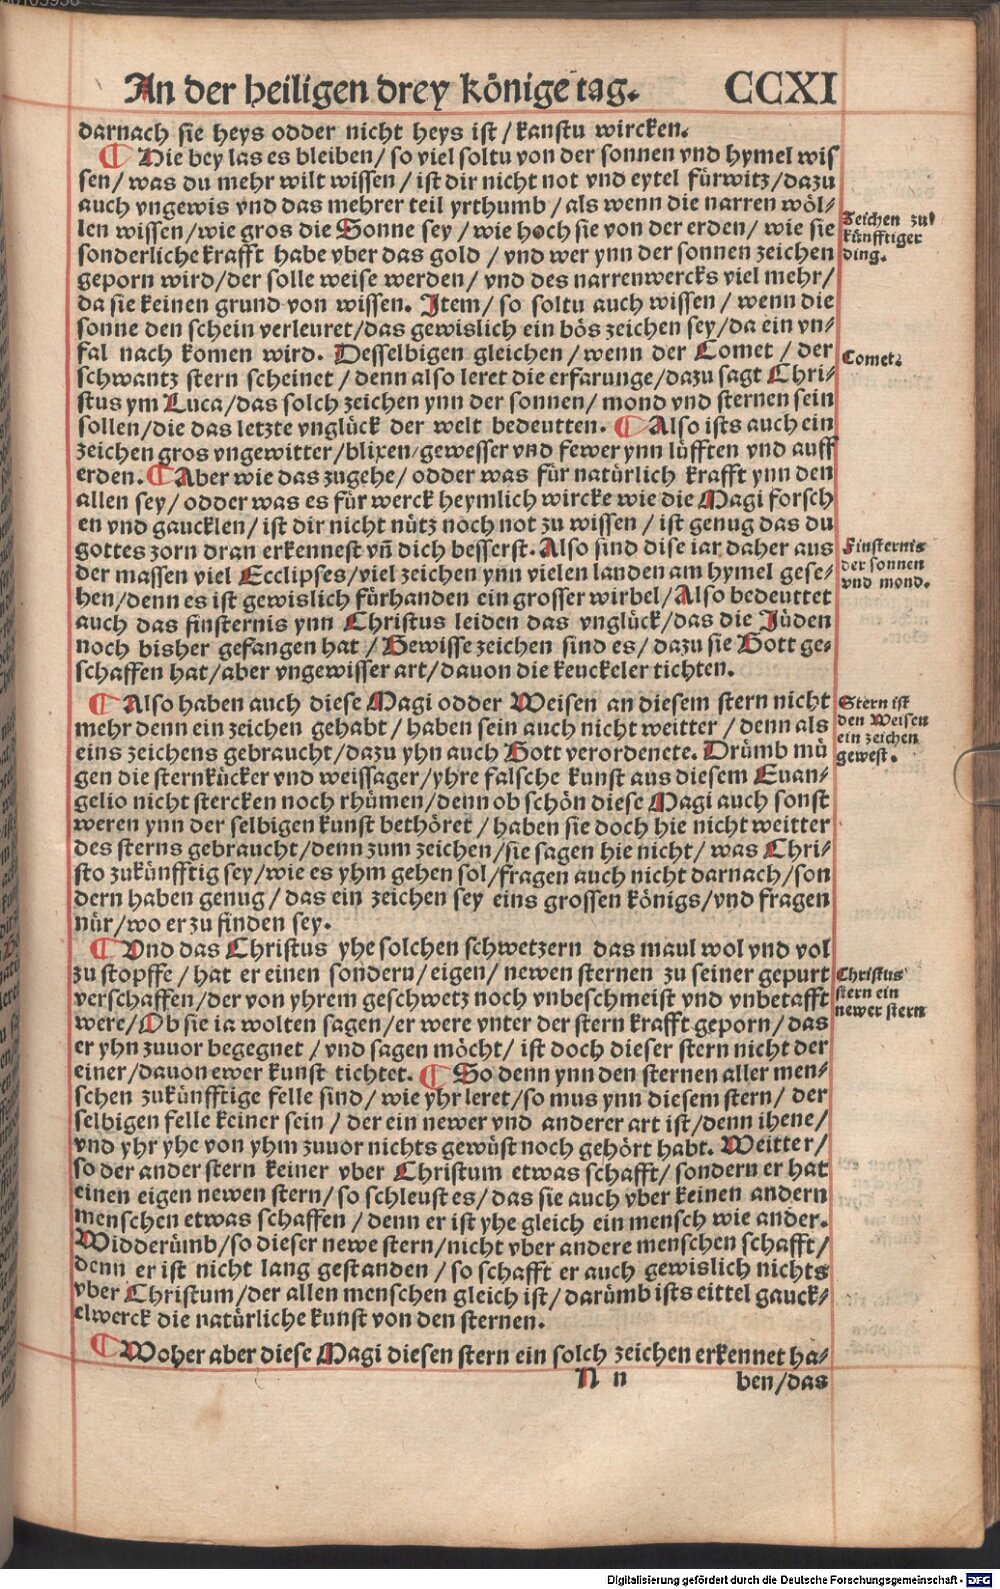 An der heiligen drey könige tag. CCXI
darnach sie heys odder nicht heys ist / kanstu wircken.
Hie bey las es bleiben / so viel soltu von der sonnen vnd hymel wis
sen / was du mehr wilt wissen / ist dir nicht not vnd eytel fürwitz / dazu
auch vngewis vnd das mehrer teil yrthumb / als wenn die narren wöl⸗
len wissen / wie gros die Sonne sey / wie hoch sie von der erden / wie sie
sonderliche krafft habe vber das gold / vnd wer ynn der sonnen zeichen
geporn wird / der solle weise werden / vnd des narrenwercks viel mehr /
da sie keinen grund von wissen. Item / so soltu auch wissen / wenn die
sonne den schein verleuret / das gewislich ein bös zeichen sey / da ein vn⸗
fal nach komen wird. Desselbigen gleichen / wenn der Comet / der
schwantz stern scheinet / denn also leret die erfarunge / dazu sagt Chri⸗
stus ym Luca / das solch zeichen ynn der sonnen / mond vnd sternen sein
sollen / die das letzte vnglück der welt bedeutten. Also ists auch ein
zeichen gros vngewitter / blixen / gewesser vnd fewer ynn lüfften vnd auff
erden. Aber wie das zugehe / odder was für natürlich krafft ynn den
allen sey / odder was es für werck heymlich wircke wie die Magi forsch
en vnd gaucklen / ist dir nicht nütz noch not zu wissen / ist genug das du
gottes zorn dran erkennest vñ dich besserst. Also sind dise iar daher aus
der massen viel Ecclipses / viel zeichen ynn vielen landen am hymel gese⸗
hen / denn es ist gewislich fürhanden ein grosser wirbel / Also bedeuttet
auch das finsternis ynn Christus leiden das vnglück / das die Jüden
noch bisher gefangen hat / Gewisse zeichen sind es / dazu sie Gott ge⸗
schaffen hat / aber vngewisser art / dauon die keuckeler tichten.
Also haben auch diese Magi odder Weisen an diesem stern nicht
mehr denn ein zeichen gehabt / haben sein auch nicht weitter / denn als
eins zeichens gebraucht / dazu yhn auch Gott verordenete. Drümb mü
gen die sternkücker vnd weissager / yhre falsche kunst aus diesem Euan⸗
gelio nicht stercken noch rhümen / denn ob schön diese Magi auch sonst
weren ynn der selbigen kunst bethöret / haben sie doch hie nicht weitter
des sterns gebraucht / denn zum zeichen / sie sagen hie nicht / was Chri⸗
sto zukünfftig sey / wie es yhm gehen sol / fragen auch nicht darnach / son
dern haben genug / das ein zeichen sey eins grossen königs / vnd fragen
nür / wo er zu finden sey.
Vnd das Christus yhe solchen schwetzern das maul wol vnd vol
zu stopffe / hat er einen sondern / eigen / newen sternen zu seiner gepurt
verschaffen / der von yhrem geschwetz noch vnbeschmeist vnd vnbetafft
were / Ob sie ia wolten sagen / er were vnter der stern krafft geporn / das
er yhn zuuor begegnet / vnd sagen möcht / ist doch dieser stern nicht der
einer / dauon ewer kunst tichtet. So denn ynn den sternen aller men⸗
schen zukünfftige felle sind / wie yhr leret / so mus ynn diesem stern / der
selbigen felle keiner sein / der ein newer vnd anderer art ist / denn ihene /
vnd yhr yhe von yhm zuuor nichts gewüst noch gehört habt. Weitter /
so der ander stern keiner vber Christum etwas schafft / sondern er hat
einen eigen newen stern / so schleust es / das sie auch vber keinen andern
menschen etwas schaffen / denn er ist yhe gleich ein mensch wie ander.
Widderümb / so dieser newe stern / nicht vber andere menschen schafft /
denn er ist nicht lang gestanden / so schafft er auch gewislich nichts
vber Christum / der allen menschen gleich ist / darümb ists eittel gauck⸗
elwerck die natürliche kunst von den sternen.
Woher aber diese Magi diesen stern ein solch zeichen erkennet ha⸗
N n ben / das
Zeichen zu⸗
künfftiger
ding.
Comet.
Finsternis
der sonnen
vnd mond.
Stern ist
den Weisen
ein zeichen
gewest.
Christus
stern ein
newer stern
Digitalisierung gefördert durch die Deutsche Forschungsgemeinschaft - DFG